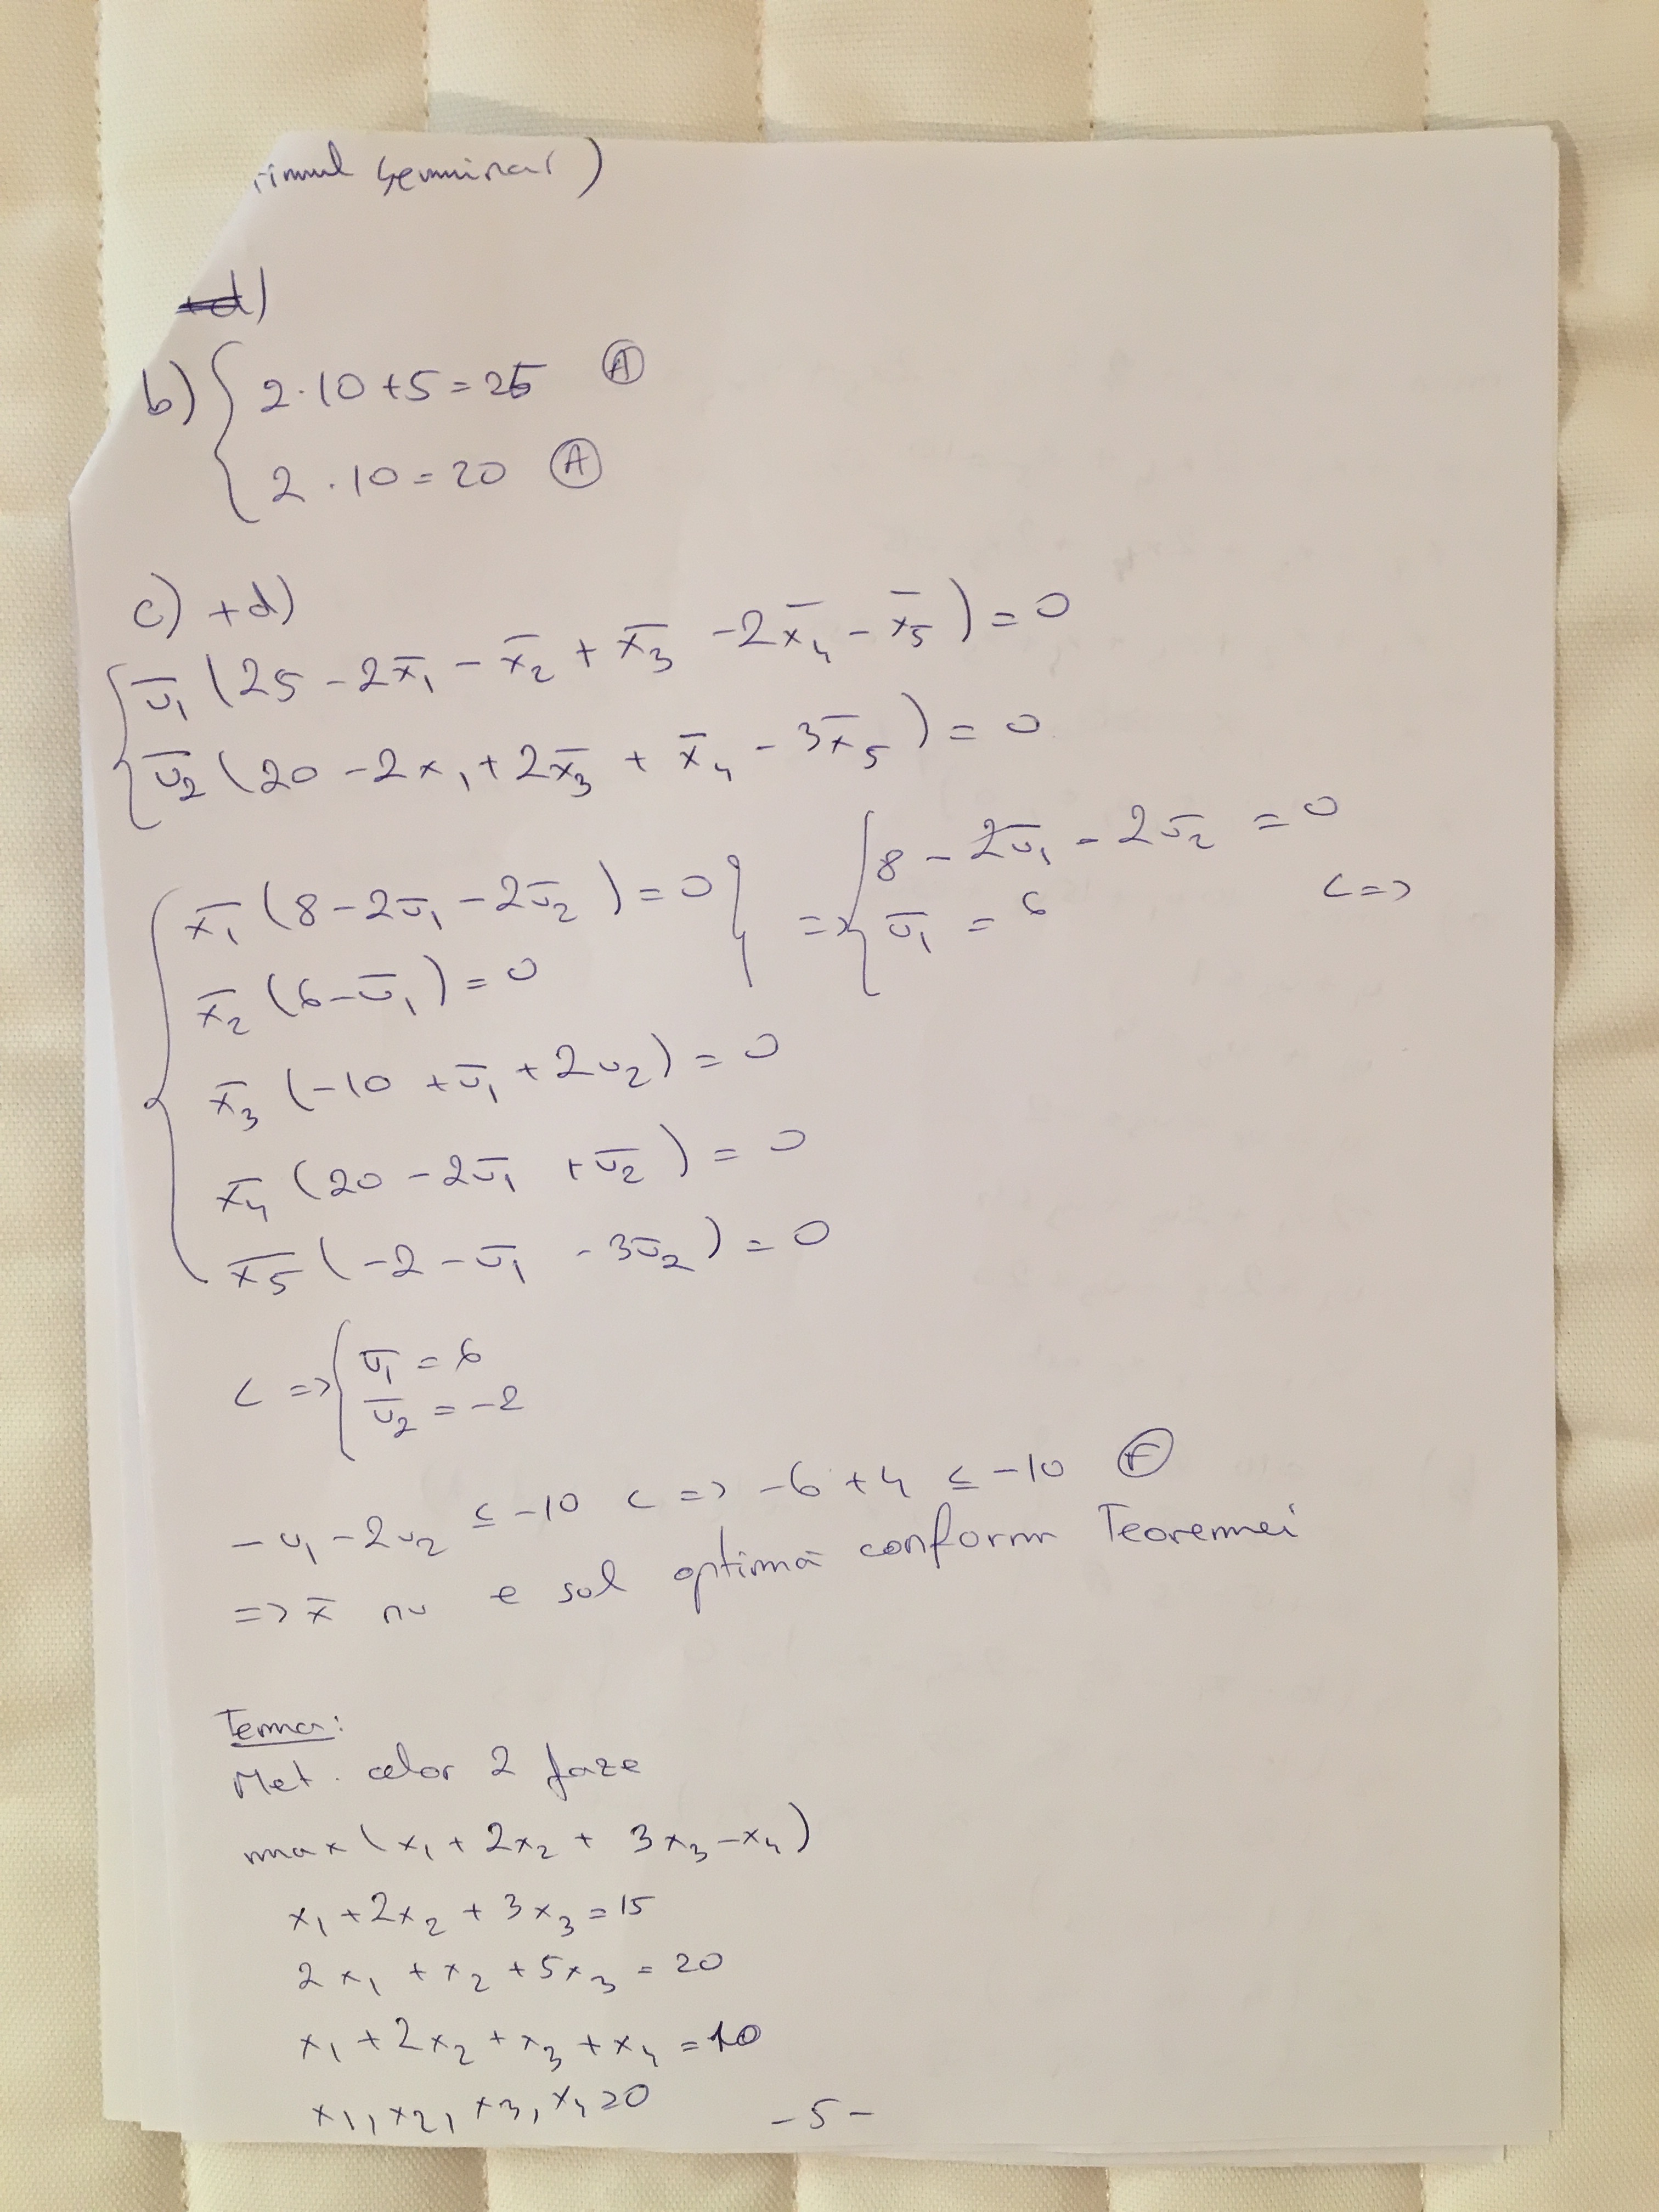 seminar)
d)
b) { 2·10+5=25 (A)
2·10=20 (A)
c) +d)
{ ū₁ (25 - 2x̄₁ - x̄₂ + x̄₃ - 2x̄₄ - x̄₅) = 0
ū₂ (20 - 2x₁ + 2x̄₃ + x̄₄ - 3x̄₅) = 0
{ x̄₁ (8 - 2ū₁ - 2ū₂) = 0 } => { 8 - 2ū₁ - 2ū₂ = 0 <=>
x̄₂ (6 - ū₁) = 0 ū₁ = 6
x̄₃ (-10 + ū₁ + 2u₂) = 0
x̄₄ (20 - 2ū₁ + ū₂) = 0
x̄₅ (-2 - ū₁ - 3ū₂) = 0
<=> { ū₁ = 6
ū₂ = -2
-u₁ - 2u₂ ≤ -10 <=> -6 + 4 ≤ -10 (F)
=> x̄ nu e sol optimă conform Teoremei
Tema:
Met. celor 2 faze
max (x₁ + 2x₂ + 3x₃ - x₄)
x₁ + 2x₂ + 3x₃ = 15
2x₁ + x₂ + 5x₃ = 20
x₁ + 2x₂ + x₃ + x₄ = 10
x₁, x₂, x₃, x₄ ≥0
-5-